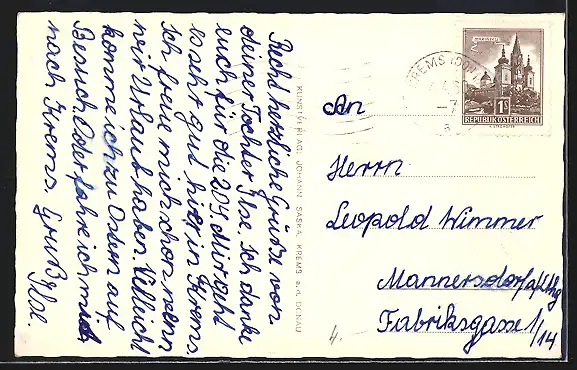 Recht herzliche Grüße von
deiner Tochter Ilse. Ich danke
euch für die 20 S. Mir geht
es sehr gut hier in Krems.
Ich freue mich schon wenn
wir Urlaub haben. Villeicht
komme ich zu Ostern auf
Besuch. Oder fahre ich mit
nach Krems. Gruß Ilse.
KUNSTVERLAG JOHANN SASKA, KREMS a. d. DONAU
KREMS (DONAU)
1S
REPUBLIK ÖSTERREICH
An
Herrn
Leopold Wimmer
Mannersdorf a/Lthg
Fabriksgasse 1/14
4.-